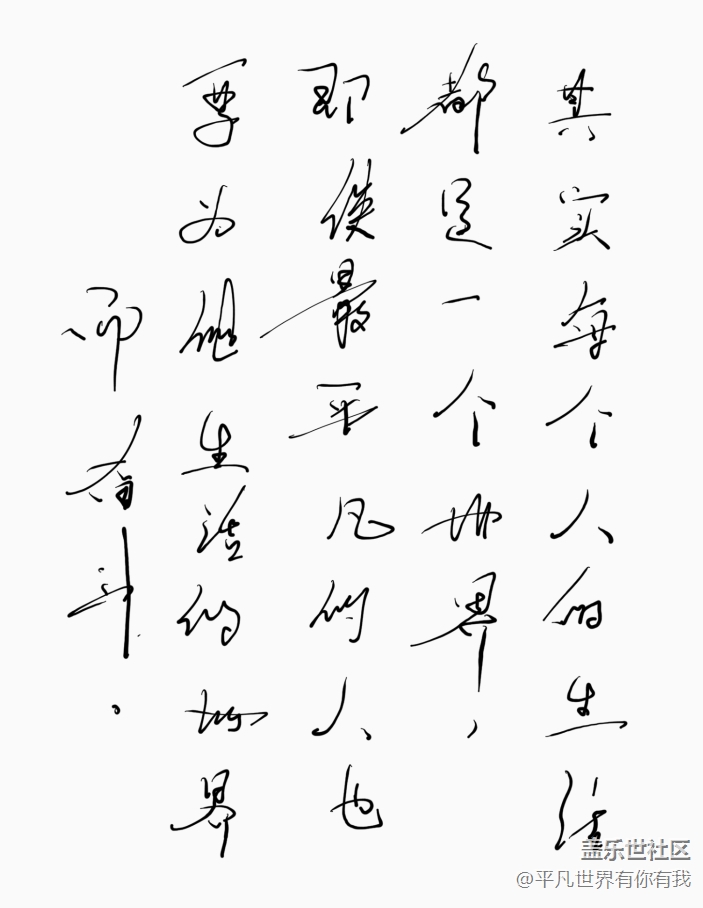 其实每个人的生活
都是一个世界，
即使最平凡的人也
要为他生活的世界
而奋斗。
盖乐世社区
@平凡世界有你有我